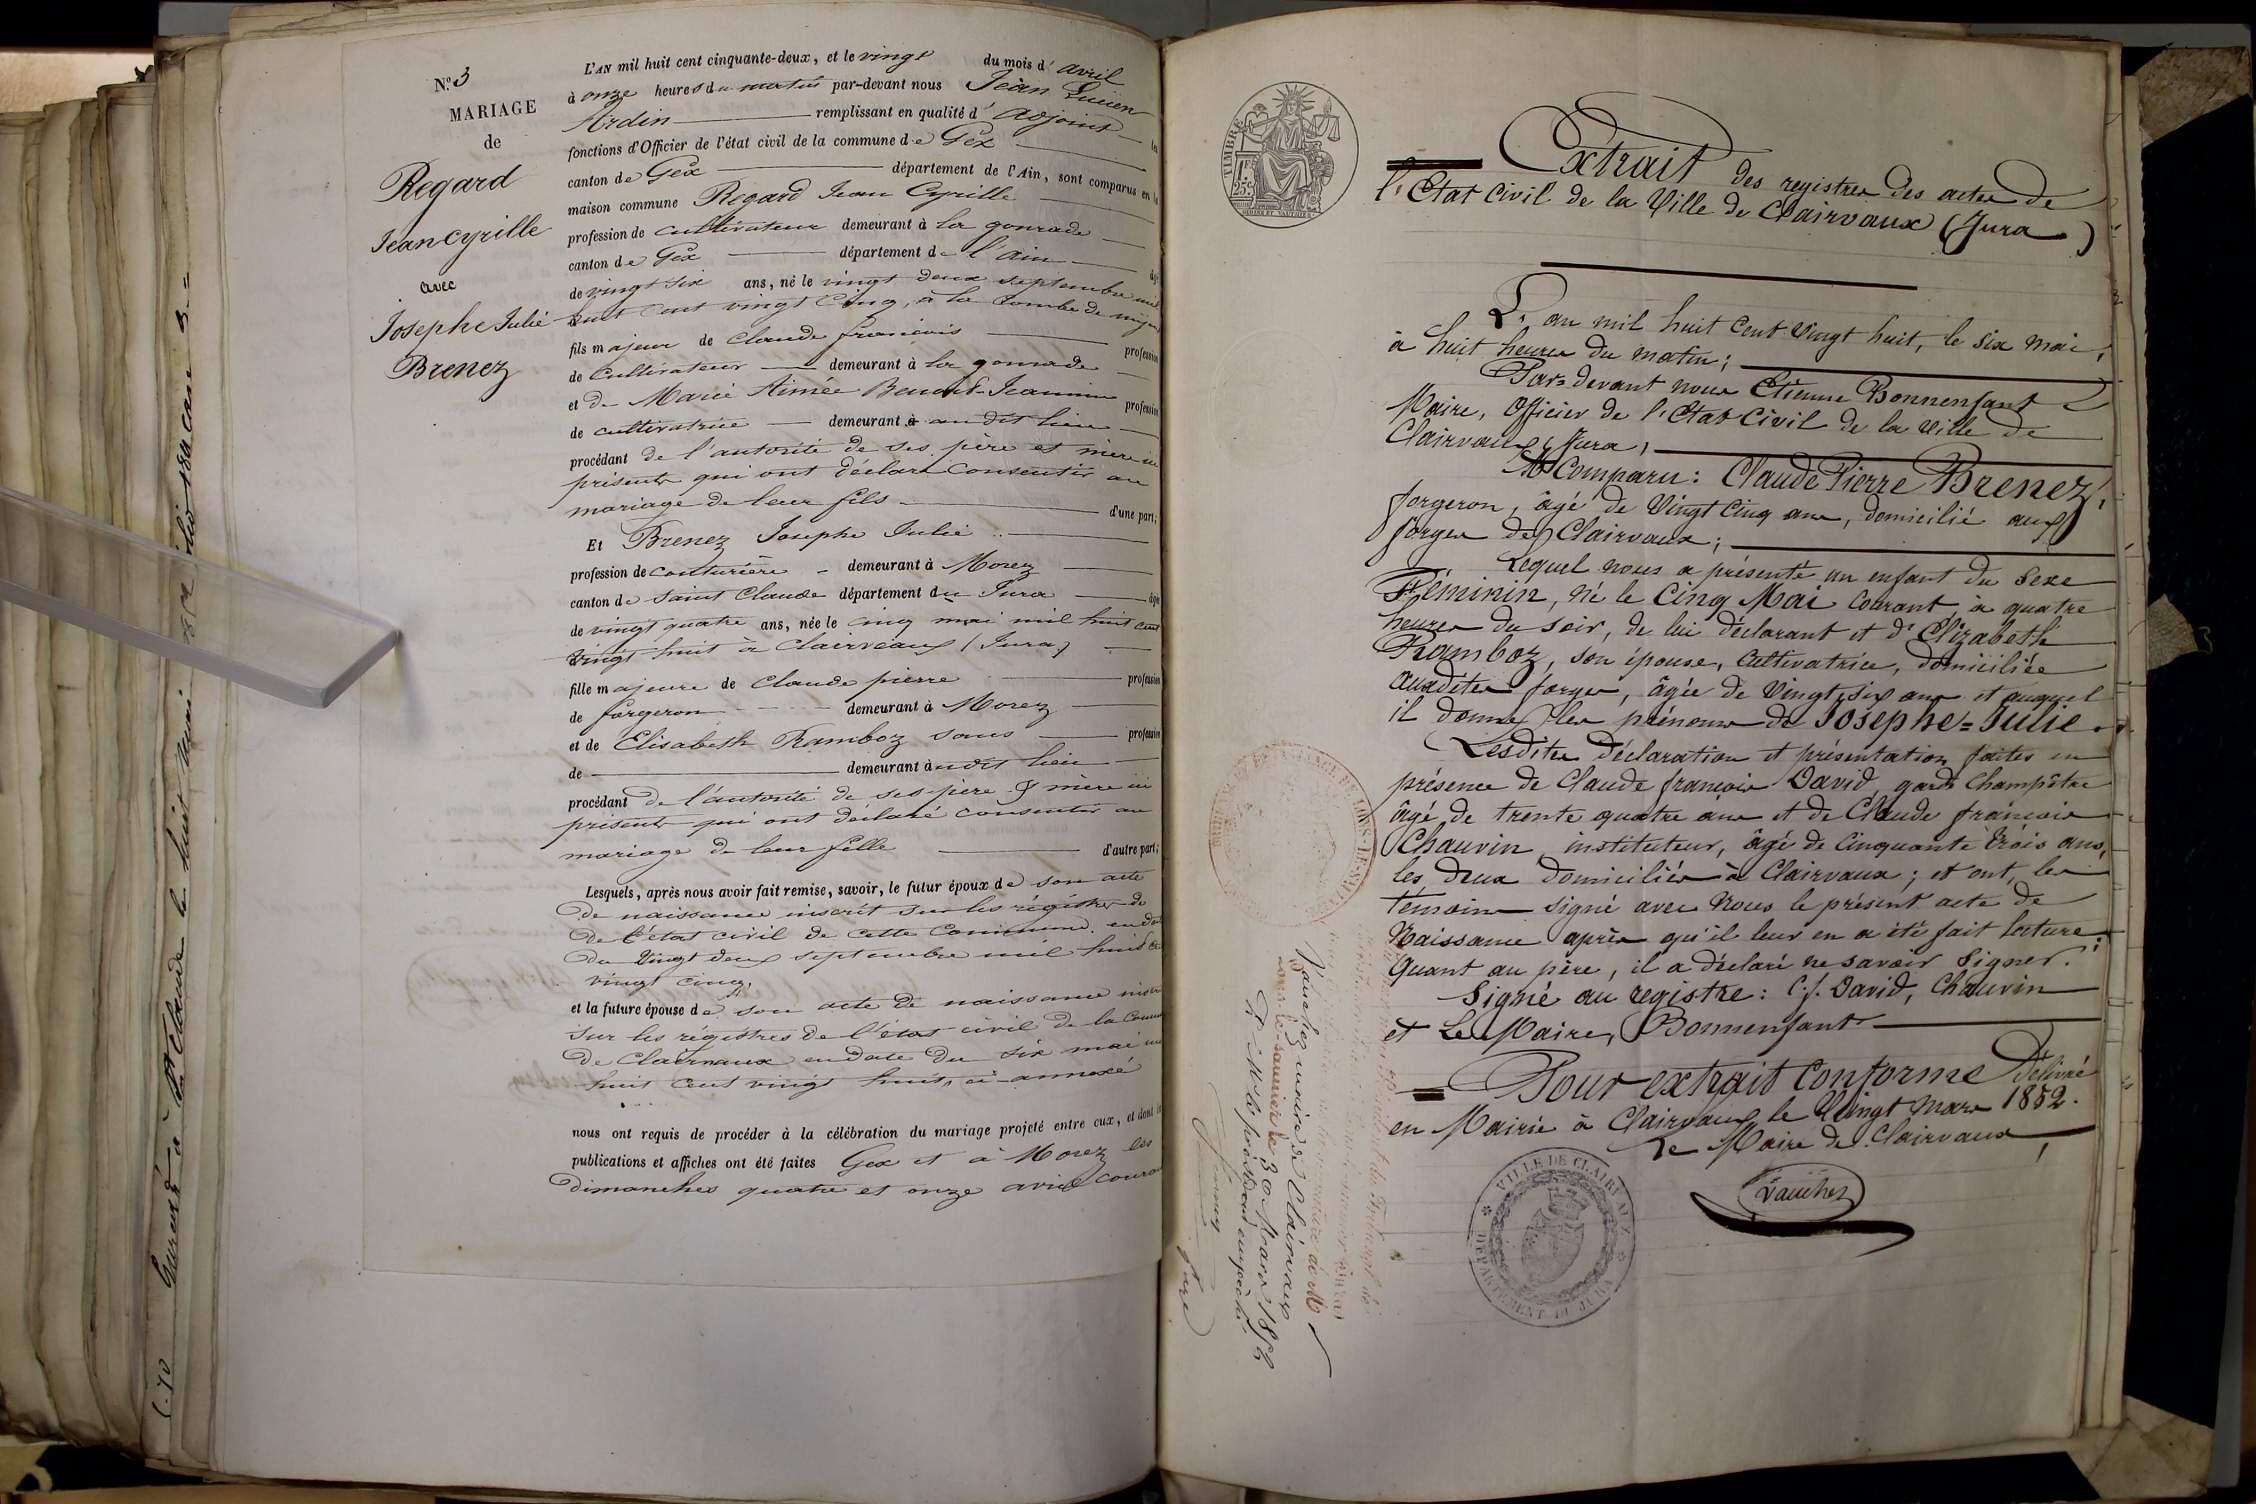 N.º 3
MARIAGE
de
Regard
Jean Cyrille
avec
Josephe Julie
Brenez
L'AN mil huit cent cinquante-deux, et le vingt du mois d'avril
à onze heures du matin par-devant nous Jean Lucien
Ardin remplissant en qualité d'adjoint
fonctions d'Officier de l'état civil de la commune de Gex
canton de Gex département de l'Ain, sont comparus en la
maison commune Regard Jean Cyrille
profession de cultivateur demeurant à la gonrade
canton de Gex département de l'ain
de vingt six ans, né le vingt deux septembre mil
huit cent vingt cinq, à la Combe de mijoux
fils majeur de Claude françois profession
de cultivateur demeurant à la gonrade
et de Marie Aimée Benoit-Jeannin profession
de cultivatrice demeurant au dit lieu
procédant de l'autorité de ses père et mère ici
présents qui ont déclaré consentir au
mariage de leur fils d'une part;
Et Brenez Josephe Julie
profession de couturière demeurant à Morez
canton de Saint Claude département du Jura âgée
de vingt quatre ans, née le cinq mai mil huit cent
vingt huit à Clairveaux (Jura)
fille majeure de Claude pierre profession
de forgeron demeurant à Morez
et de Elisabeth Ramboz sans profession
de demeurant à udit lieu
procédant de l'autorité de ses père & mère ici
présents qui ont déclaré consentir au
mariage de leur fille d'autre part;
Lesquels, après nous avoir fait remise, savoir, le futur époux de son acte
de naissance inscrit sur les régistres de
de l'état civil de cette Commune en date
du vingt deux septembre mil huit cent
vingt cinq.
et la future épouse de son acte de naissance inscrit
sur les régistres de l'état civil de la Commune
de Clairvaux en date du six mai mil
huit cent vingt huit, ci-annexé
nous ont requis de procéder à la célébration du mariage projeté entre eux, et dont les
publications et affiches ont été faites Gex et à Morez les
dimanches quatre et onze avril courant
TIMBRE
1 F.
25 c.
Extrait des registres des actes de
l'Etat Civil de la Ville de Clairvaux (Jura)
L'an mil huit cent vingt huit, le six mai,
à huit heures du matin;
Par-devant nous Etienne Bonnenfant
Maire, Officier de l'Etat Civil de la Ville de
Clairvaux, Jura,
A Comparu: Claude Pierre Brenez,
forgeron, âgé de vingt cinq ans, domicilié aux
forges de Clairvaux;
Lequel nous a présenté un enfant du Sexe
Féminin, né le Cinq Mai courant, à quatre
heures du soir, de lui déclarant et d'Elizabeth
Ramboz, son épouse, cultivatrice, domiciliée
auxdites forges, âgée de vingt six ans et auquel
il donne les prénoms de Josephe=Julie.
Lesdites déclaration et présentation faites en
présence de Claude françois David, garde champêtre
âgé de trente quatre ans et de Claude françois
Chauvin, instituteur, âgé de cinquante trois ans,
les deux domiciliés à Clairvaux; et ont, les
témoins signé avec Nous le présent acte de
Naissance après qu'il leur en a été fait lecture.
Quant au père, il a déclaré ne savoir Signer.
Signé au registre: C. f. David, Chauvin
et Le Maire, Bonnenfant
Pour extrait conforme Délivré
en Mairie à Clairvaux le Vingt Mars 1852.
Le Maire de Clairvaux,
Vauchez
VILLE DE CLAIRVAUX
DÉPARTEMENT DU JURA
Vauchez maire de Clairvaux
30 Mars 1852